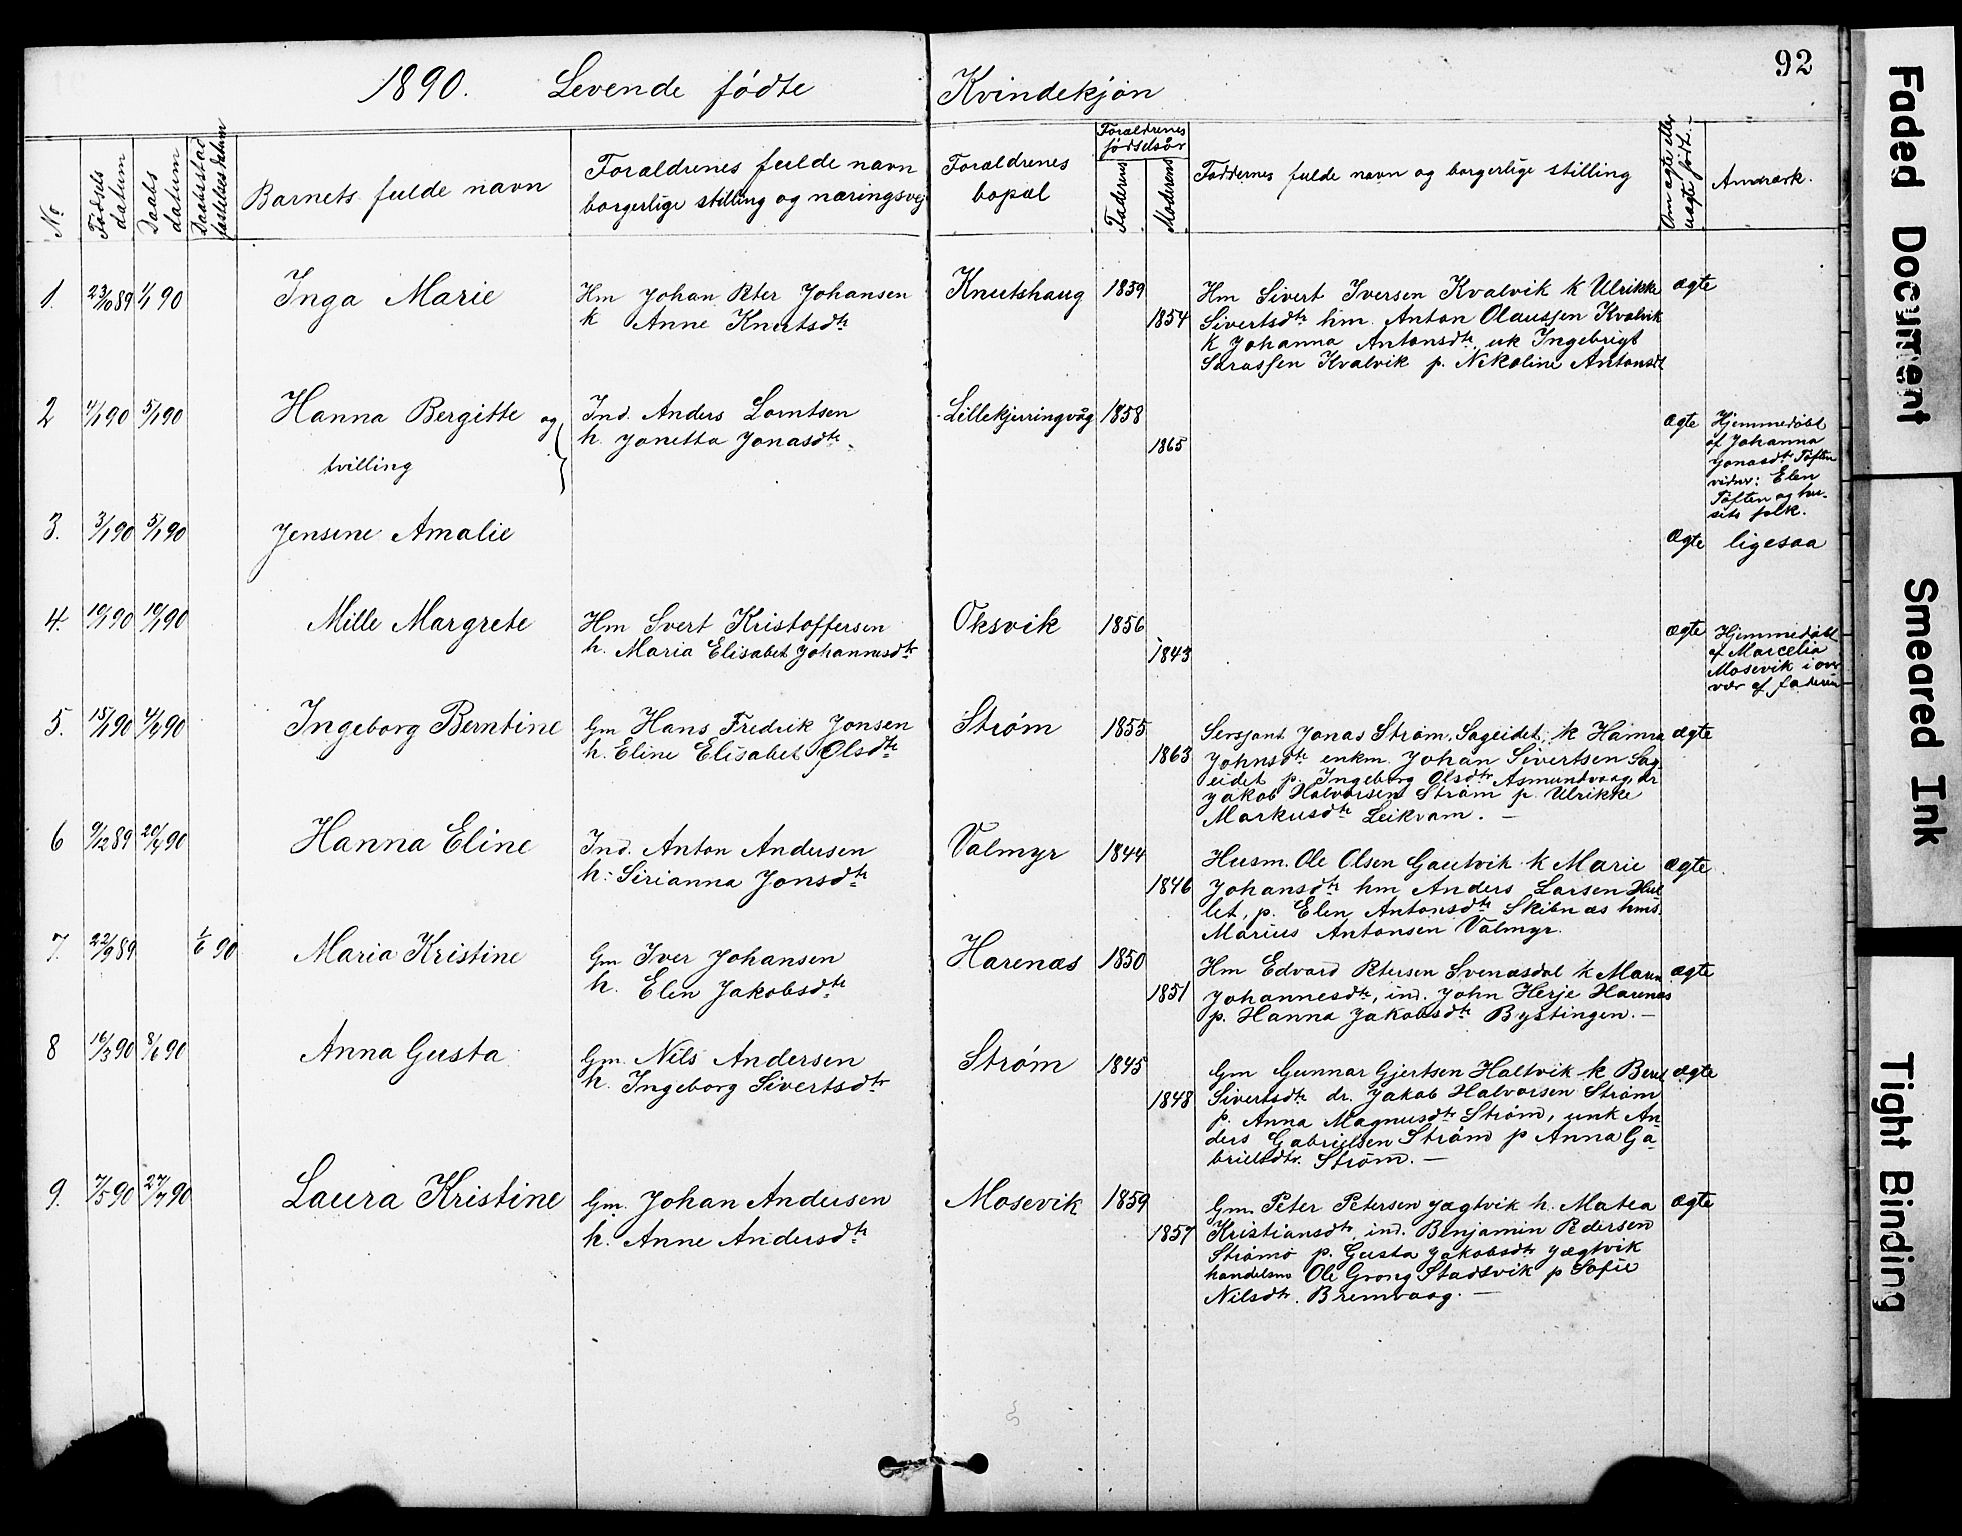 92
1890. Levende fødte Kvindekjøn
Nr
Fødsels datum
Daabs datum
Daabsstad
Barnets fulde navn
Forældrenes fulde navn
borgerlige stilling og næringsvej
Forældrenes
bopæl
Forældrenes
fødselsår
Faderens
Moderens
Faddernes fulde navn og borgerlige stilling
Om ægte eller
uægte født.-
Anmærk.
1. 23/10 89 1/1 90 Inga Marie
Hm Johan Peter Johansen
k Anne Knutsdtr
Knutshaug 1859
1854
Hm Sivert Iversen Kvalvik k Ulrikke
Sivertsdtr hm. Anton Olaussen Kvalvik
k Johanna Antonsdtr, uk Ingebrigt
Kvalvik p. Nikoline Antonsdt
ægte
2 4/1 90 5/1 90 Hanna Bergitte og
tvilling
Ind. Anders Lorntsen
h. Jonetta Jonasdtr.
Lillekjerringvåg 1858
1865
ægte
Hjemmedøbt
af Johanna
Jonasdtr Tøften
vidner: Elen
Tøften og hu-
sets folk.
3. 3/1 90 5/1 90 Jensine Amalie
ægte ligesaa
4. 10/1 90 19/1 90 Mille Margrete
Hm Sivert Kristoffersen
h. Maria Elisabet Johannesdtr
Oksvik 1856
1843
ægte
Hjemmedøbt
af Marcelia
Mosevik i over
vær af faderen
5. 15/1 90 4/2 90 Ingeborg Berntine
Gm Hans Fredrik Jonsen
h. Eline Elisabet Olsdtr
Strøm 1855
1863
Sersjant Jonas Strøm, Sageidet, k Hanna
Johnsdtr enkm. Johan Sivertsen Sag-
eidet p. Ingeborg Olsdtr Asmundvaag, dr
Jakob Halvorsen Strøm p. Ulrikke
Markusdtr Leikvam. —
ægte
6 9/12 89 20/4 90 Hanna Eline
Ind. Anton Andersen
h. Sirianna Jonsdtr
Valmyr 1844
1846
Husm. Ole Olsen Gautvik k Marie
Johansdtr hm Anders Larsen Hul
let, p. Elen Antonsdtr Skibnæs hms.
Marius Antonsen Valmyr.
ægte
7. 22/9 89 1/6 90 Maria Kristine
Gm Iver Johansen
h. Elen Jakobsdtr
Harenæs 1850
1851
Hm Edvard Petersen Svenæsdal k Maren
Johannesdtr, ind. John Herje Harenæs
p. Hanna Jakobsdtr Bystingen. —
ægte
8 16/3 90 8/6 90 Anna Gusta
Gm. Nils Andersen
h. Ingeborg Sivertsdtr
Strøm 1845
1848
Gm Gunnar Gjertsen Haltvik k Beret
Sivertsdtr dr. Jakob Halvorsen Strøm
p. Anna Magnusdtr Strøm, unk An-
ders Gabrielsen Strøm p Anna Ga
brielsdtr. Strøm. —
ægte
9. 7/5 90 27/7 90 Laura Kristine
Gm. Johan Andersen
h. Anne Andersdtr
Mosevik 1859
1857
Gm. Peter Petersen Jægtvik h. Matea
Kristiansdtr, ind. Benjamin Pedersen
Strømø p. Gusta Jakobsdtr Jægtvik
handelsm Ole Grong Stadsvik p Sofie
Nilsdtr. Bremvaag. —
ægte
Faded Document
Smeared Ink
Tight Binding